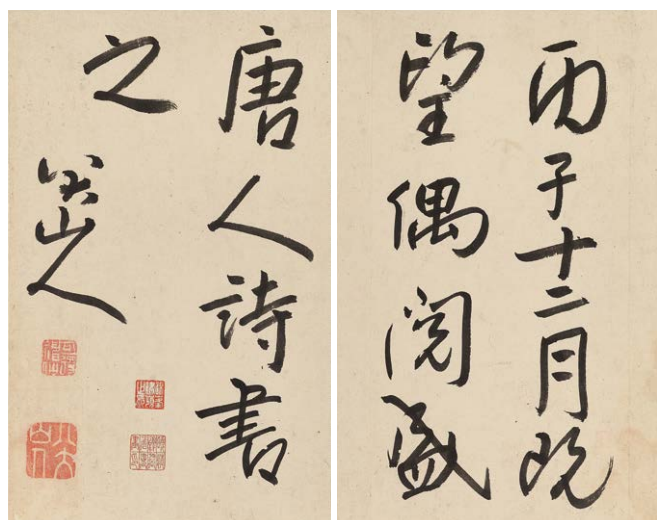 丙子十二月既
望偶閱盛
唐人詩書
之
八大山人